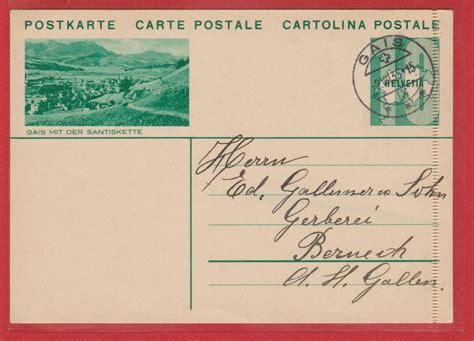 POSTKARTE CARTE POSTALE CARTOLINA POSTALE
GAIS
HELVETIA
GAIS MIT DER SANTISKETTE
Herrn
Ed. Gallusers Sohn
Gerberei
Berneck
Ct. St. Gallen.